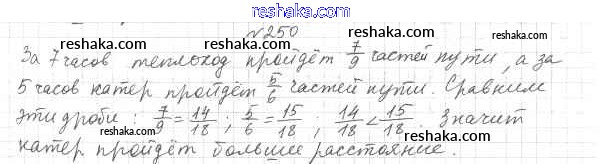 reshaka.com
№250
reshaka.com reshaka.com
За 7 часов теплоход пройдёт 7/9 частей пути, а за
reshaka.com
5 часов катер пройдёт 5/6 частей пути. Сравним
reshaka.com reshaka.com
эти дроби: 7/9 = 14/18; 5/6 = 15/18; 14/18 < 15/18. Значит
катер пройдёт большее расстояние.
reshaka.com